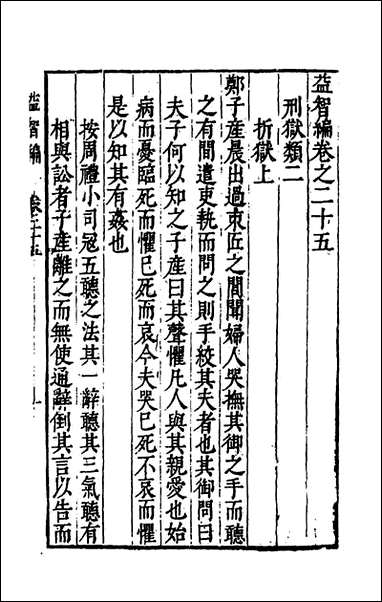 益智編卷之二十五
刑獄類二
折獄上
鄭子產晨出過東匠之閭聞婦人哭撫其御之手而聽
之有間遣吏執而問之則手絞其夫者也其御問曰
夫子何以知之子產曰其聲懼凡人與其親愛也始
病而憂臨死而懼已死而哀今夫哭已死不哀而懼
是以知其有姦也
按周禮小司寇五聽之法其一辭聽其三氣聽有
相與訟者子產離之而無使通辭倒其言以告而
益智編 卷二十五 一